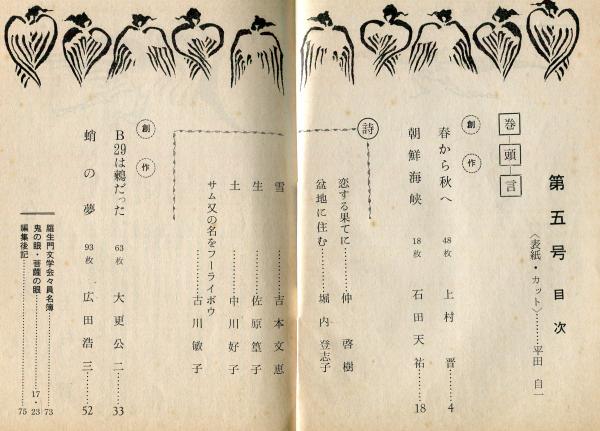 第五号 目次
〈表紙・カット〉………平田自一
巻頭言
創作
春から秋へ 48枚 上村晋……4
朝鮮海峡 18枚 石田天祐……18
詩
恋する果てに……仲啓樹
盆地に住む……堀内登志子
雪………吉本文恵
生………佐原篁子
土………中川好子
サム又の名をフーライボウ………古川敏子
創作
B29は鵺だった 63枚 大更公二……33
蛸の夢 93枚 広田浩三……52
羅生門文学会々員名簿………73
鬼の眼・菩薩の眼………17・23
編集後記………75